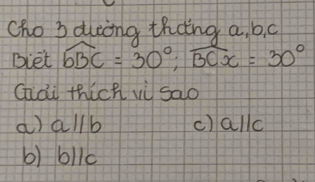 Cho 3 đường thẳng a,b,c
Biết bBC = 30°; BCx = 30°
Giải thích vì sao
a) a//b c) a//c
b) b//c